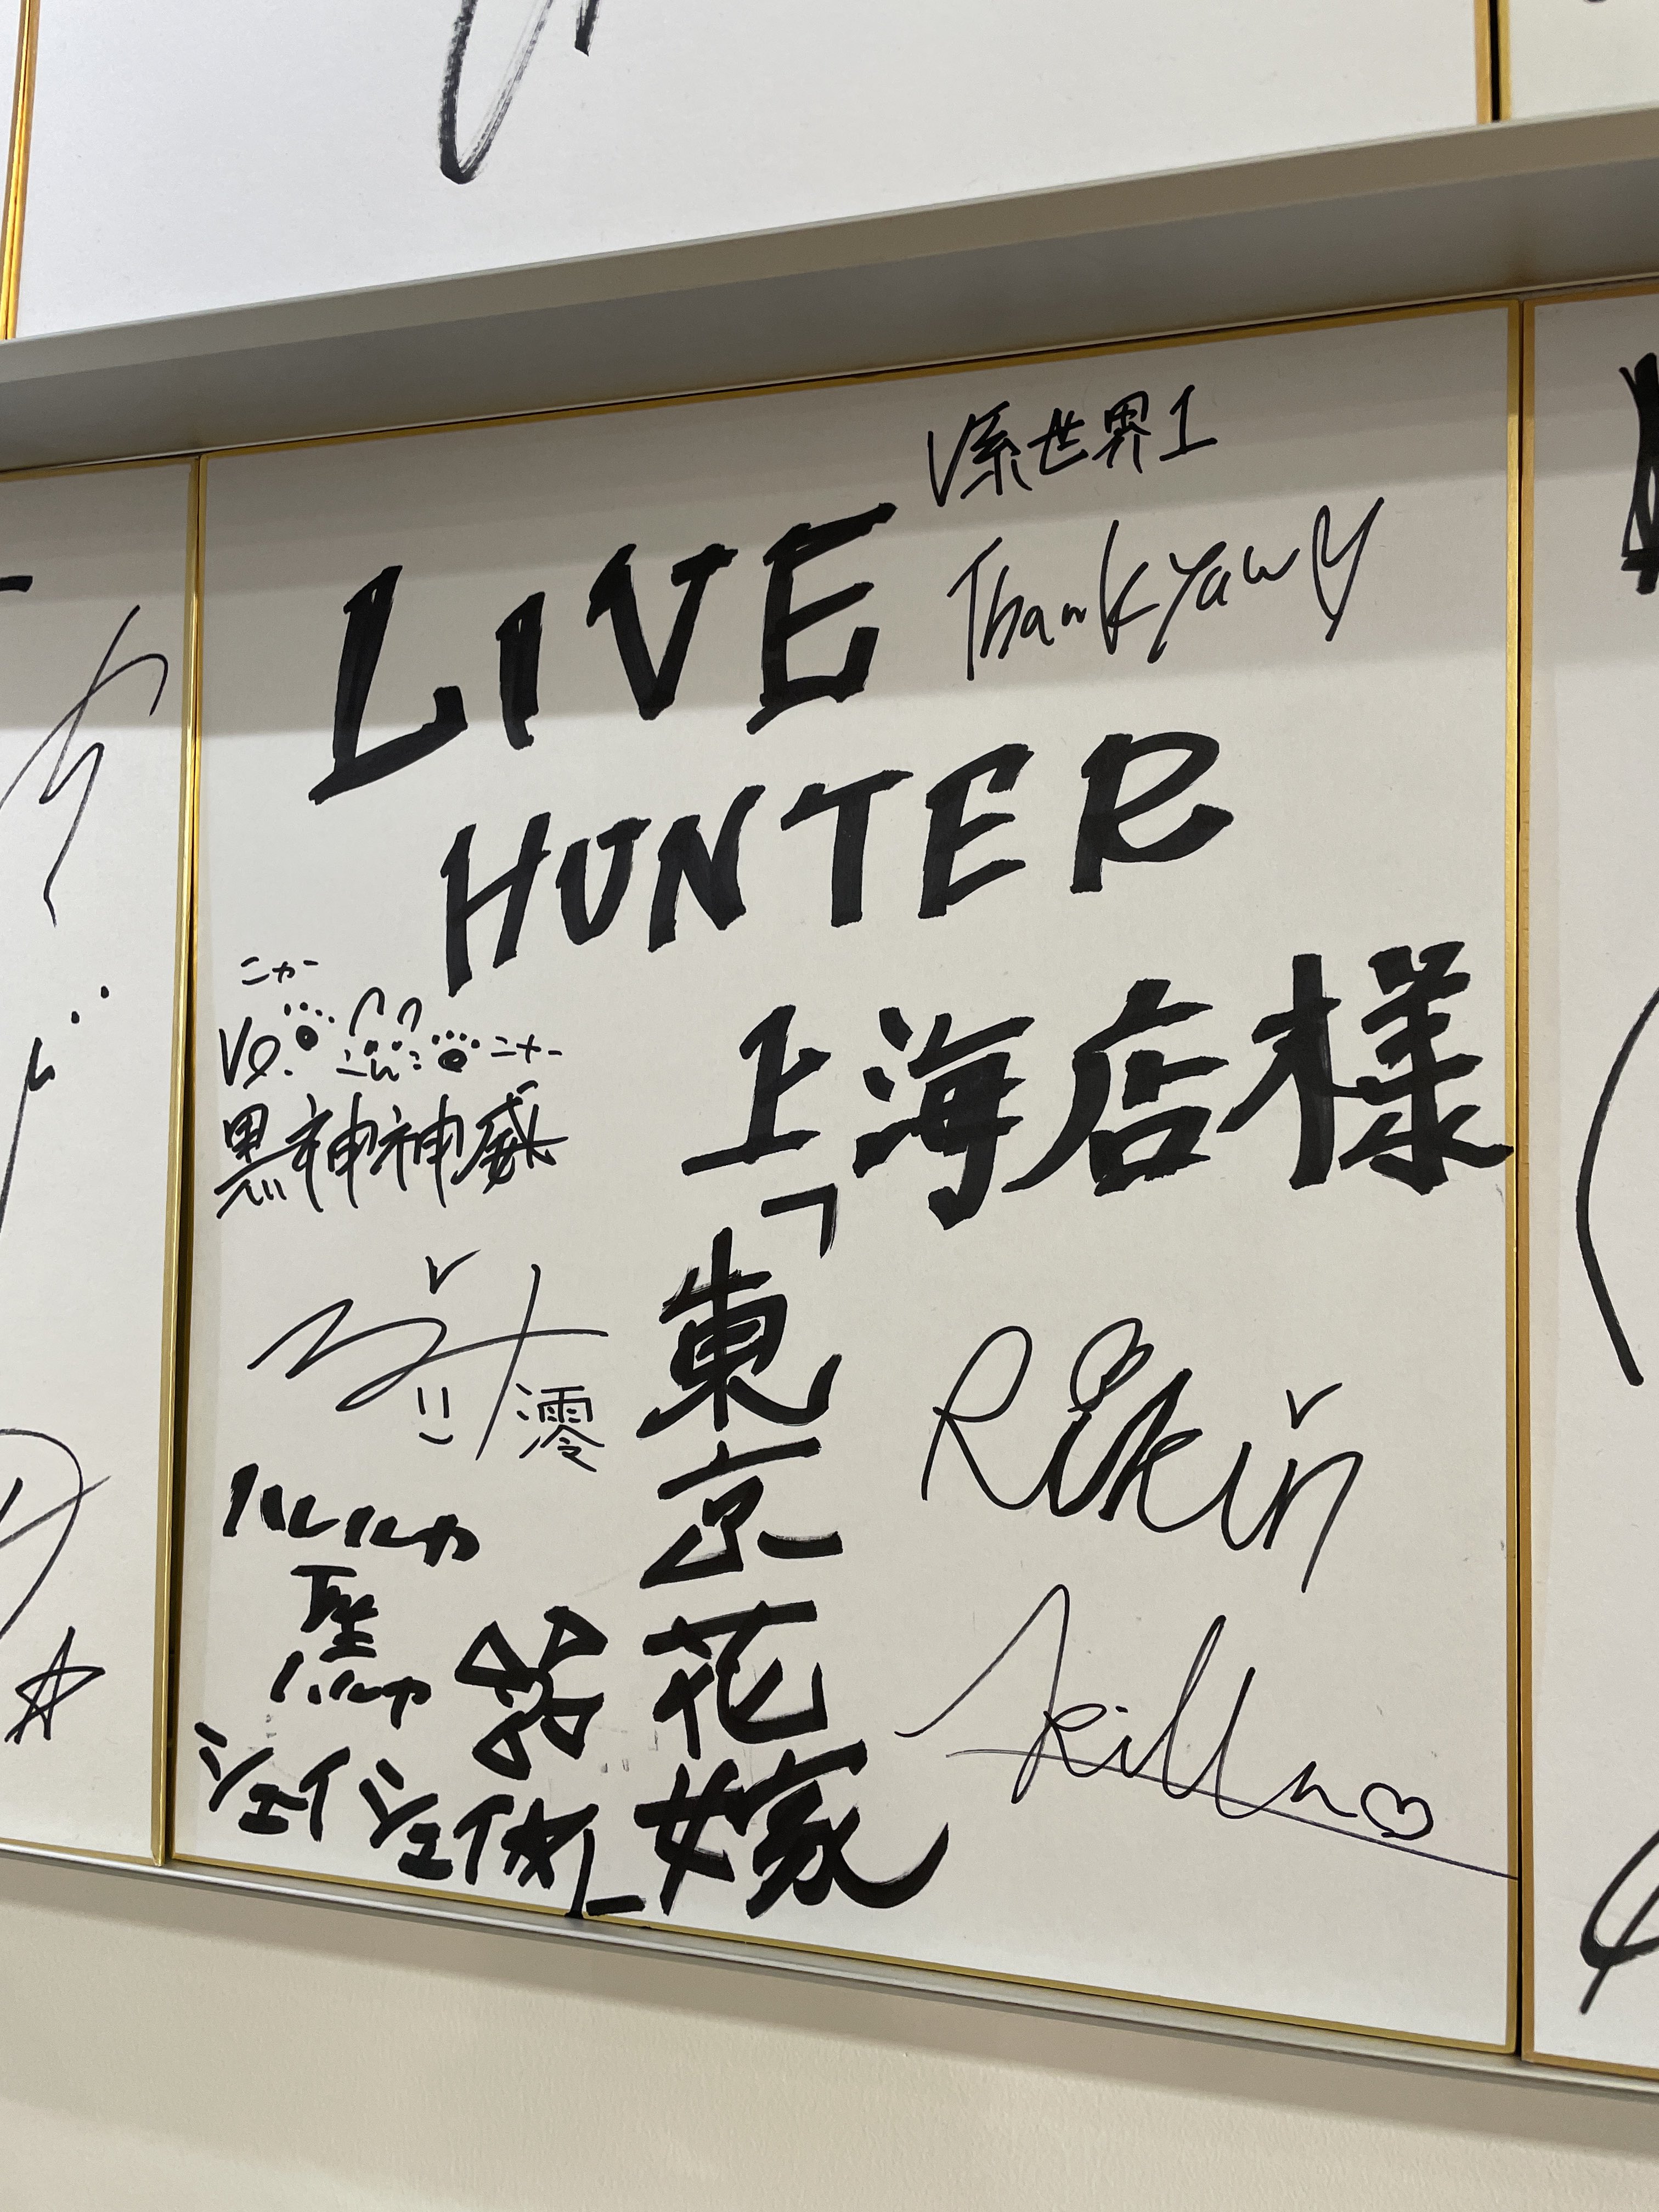 V系世界1
Thank yaw
LIVE
HUNTER
上海店様
「東京花嫁」
ニャー
Vo.
ニャー
黒神神威
澪
ハルルカ
聖
ハルカ
シェイシェイ
Rikin
killn